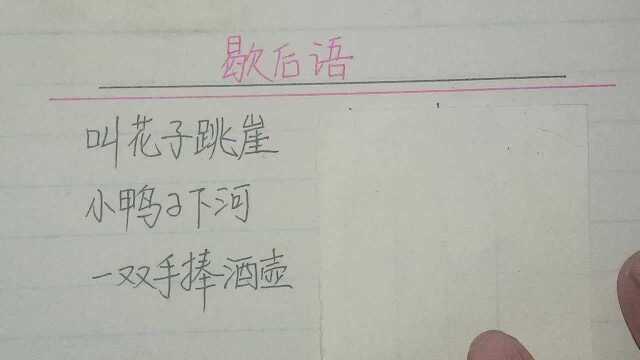 歇后语
叫花子跳崖
小鸭子下河
一双手捧酒壶